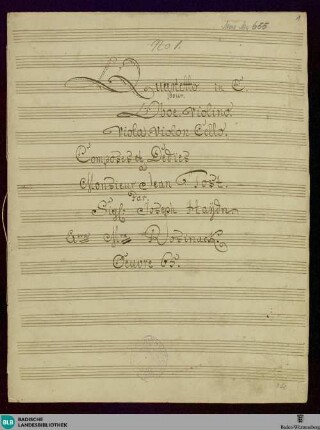 No 1.
Quartetto in C
pour
L'Oboe. Violino.
Viola. Violon Cello.
Composés et Dédiés
à
Monsieur Jean Tost.
Par
Sigl: Joseph Haÿdn.
Oeuvre 65.
BLB BADISCHE
LANDESBIBLIOTHEK
Baden-Württemberg